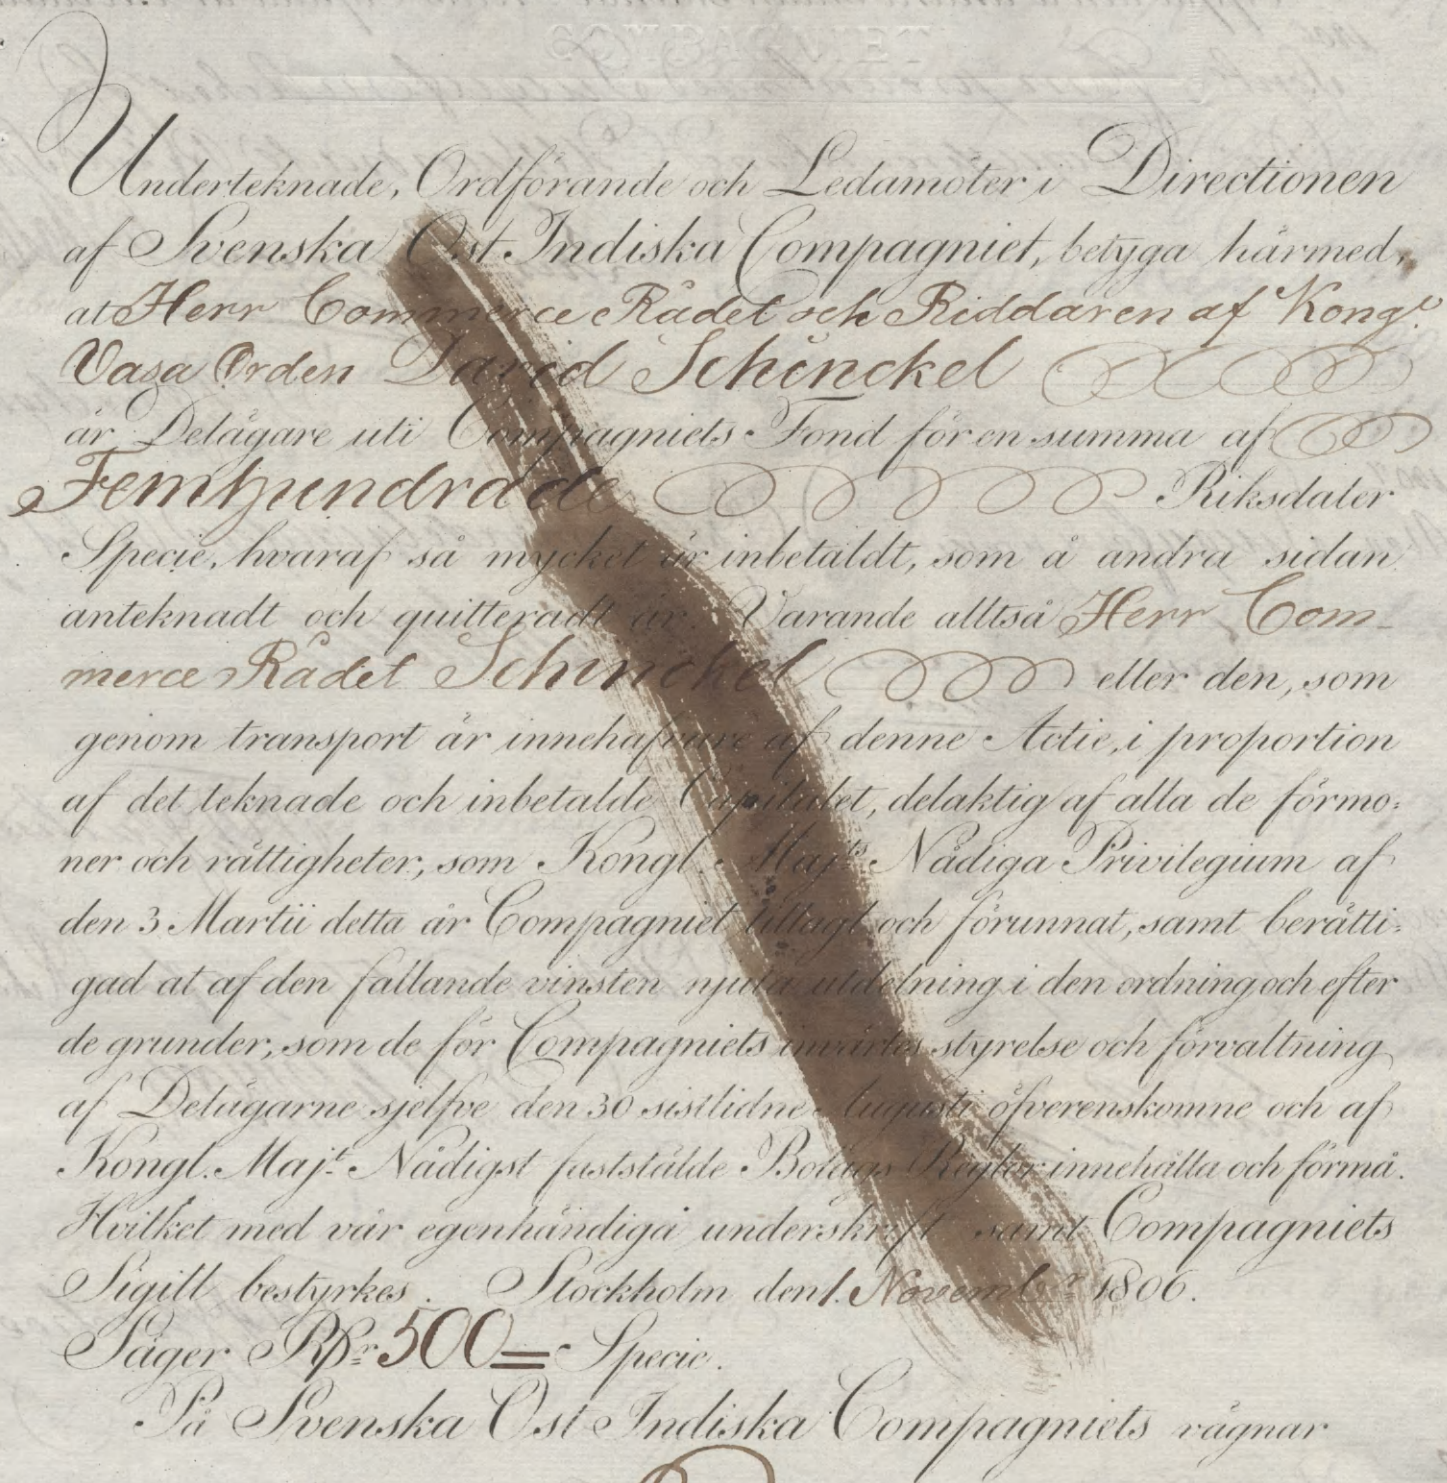 COMPAGNIET
Underteknade, Ordförande och Ledamöter i Directionen
af Svenska Ost Indiska Compagniet, betyga härmed,
at Herr Commerce Rådet och Riddaren af Kongl.
Vasa Orden David Schinckel
är Delägare uti Compagniets Fond för en summa af
Femhundrade Riksdaler
Specie, hvaraf så mycket är inbetaldt, som å andra sidan
anteknadt och quitteradt är. Varande alltså Herr Com-
merce Rådet Schinckel eller den, som
genom transport är innehafvare af denne Actie, i proportion
af det teknade och inbetalde Capitalet, delaktig af alla de förmo:
ner och rättigheter, som Kongl. Maj:ts Nådiga Privilegium af
den 3 Martii detta år Compagniet tillagt och förunnat, samt berätti:
gad at af den fallande vinsten njuta utdelning i den ordning och efter
de grunder, som de för Compagniets invärtes styrelse och förvaltning
af Delägarne sjelfve den 30 sistlidne Augusti öfverenskomne och af
Kongl. Maj:t Nådigst faststälde Bolags Reglor innehålla och förmå.
Hvilket med vår egenhändiga underskrift samt Compagniets
Sigill bestyrkes. Stockholm den 1. Novemb:r 1806.
Säger Rdr 500 = Specie.
På Svenska Ost Indiska Compagniets vägnar